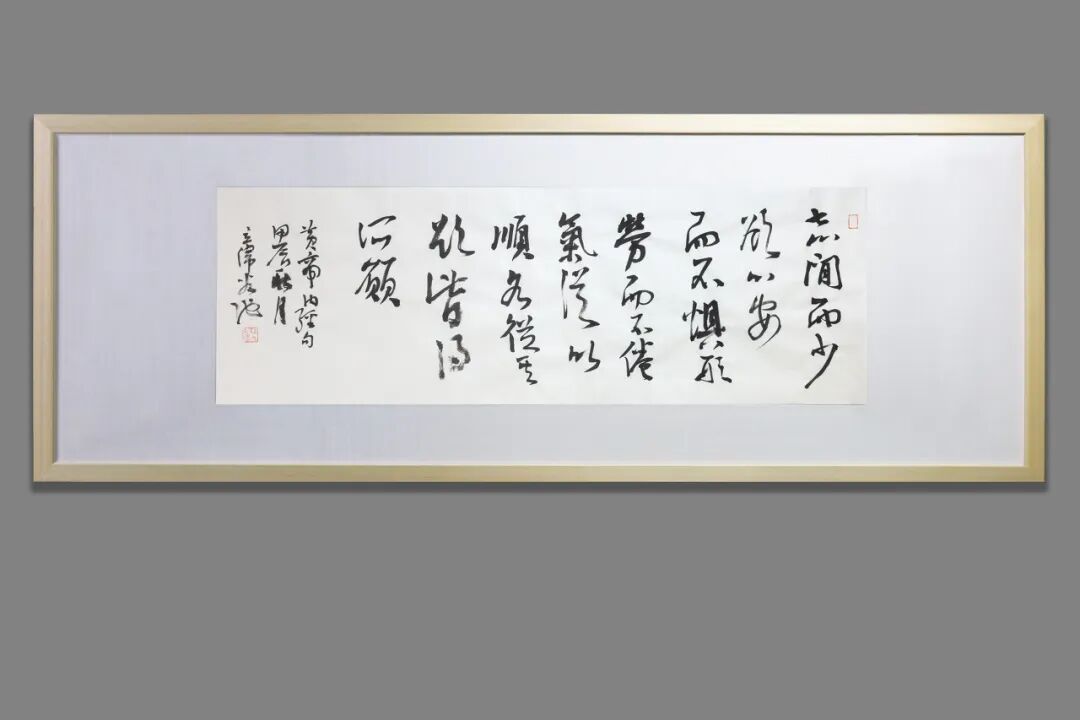 志閒而少
欲心安
而不懼形
勞而不倦
氣從以
順各從其
欲皆得
所願
黃帝內經句
甲辰秋月